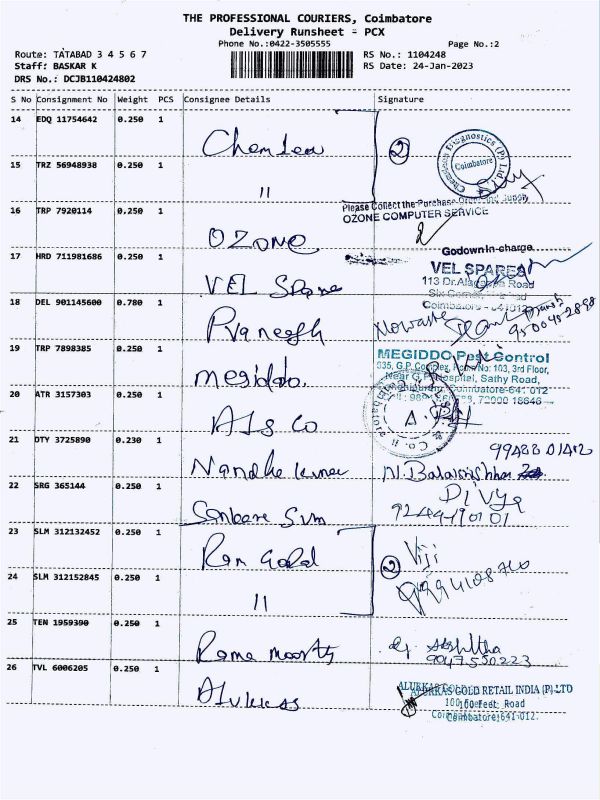 THE PROFESSIONAL COURIERS, Coimbatore
Delivery Runsheet - PCX
Phone No.:0422-3505555
Page No.:2
Route: TATABAD 3 4 5 6 7
RS No.: 1104248
Staff: BASKAR K
RS Date: 24-Jan-2023
DRS No.: DCJB110424802
S No Consignment No Weight PCS Consignee Details Signature
14 EDQ 11754642 0.250 1
②
15 TRZ 56948938 0.250 1 "
Coimbatore
Please Collect the Purchase
16 TRP 7920114 0.250 1 OZONE
OZONE COMPUTER SERVICE
17 HRD 711981686 0.250 1 VEL Spares
Godown In-charge
VEL SPARES
113 Dr.Alagappa Road
18 DEL 901145600 0.780 1
19 TRP 7898385 0.250 1 Megiddo.
MEGIDDO Pest Control
035, G.P. Complex, Room No: 103, 3rd Floor,
Near G.P. Hospital, Sathy Road,
Coimbatore-641 012
72000 18646
20 ATR 3157303 0.250 1
21 DTY 3725890 0.230 1
22 SRG 365144 0.250 1
Divya
23 SLM 312132452 0.250 1 Ram Gold
②
Viji
24 SLM 312152845 0.250 1 "
25 TEN 1959390 0.250 1 Rama moorthy
9047550223
26 TVL 6006205 0.250 1
ALUKKAS GOLD RETAIL INDIA (P) LTD
100 Feet Road
Coimbatore-641 012.